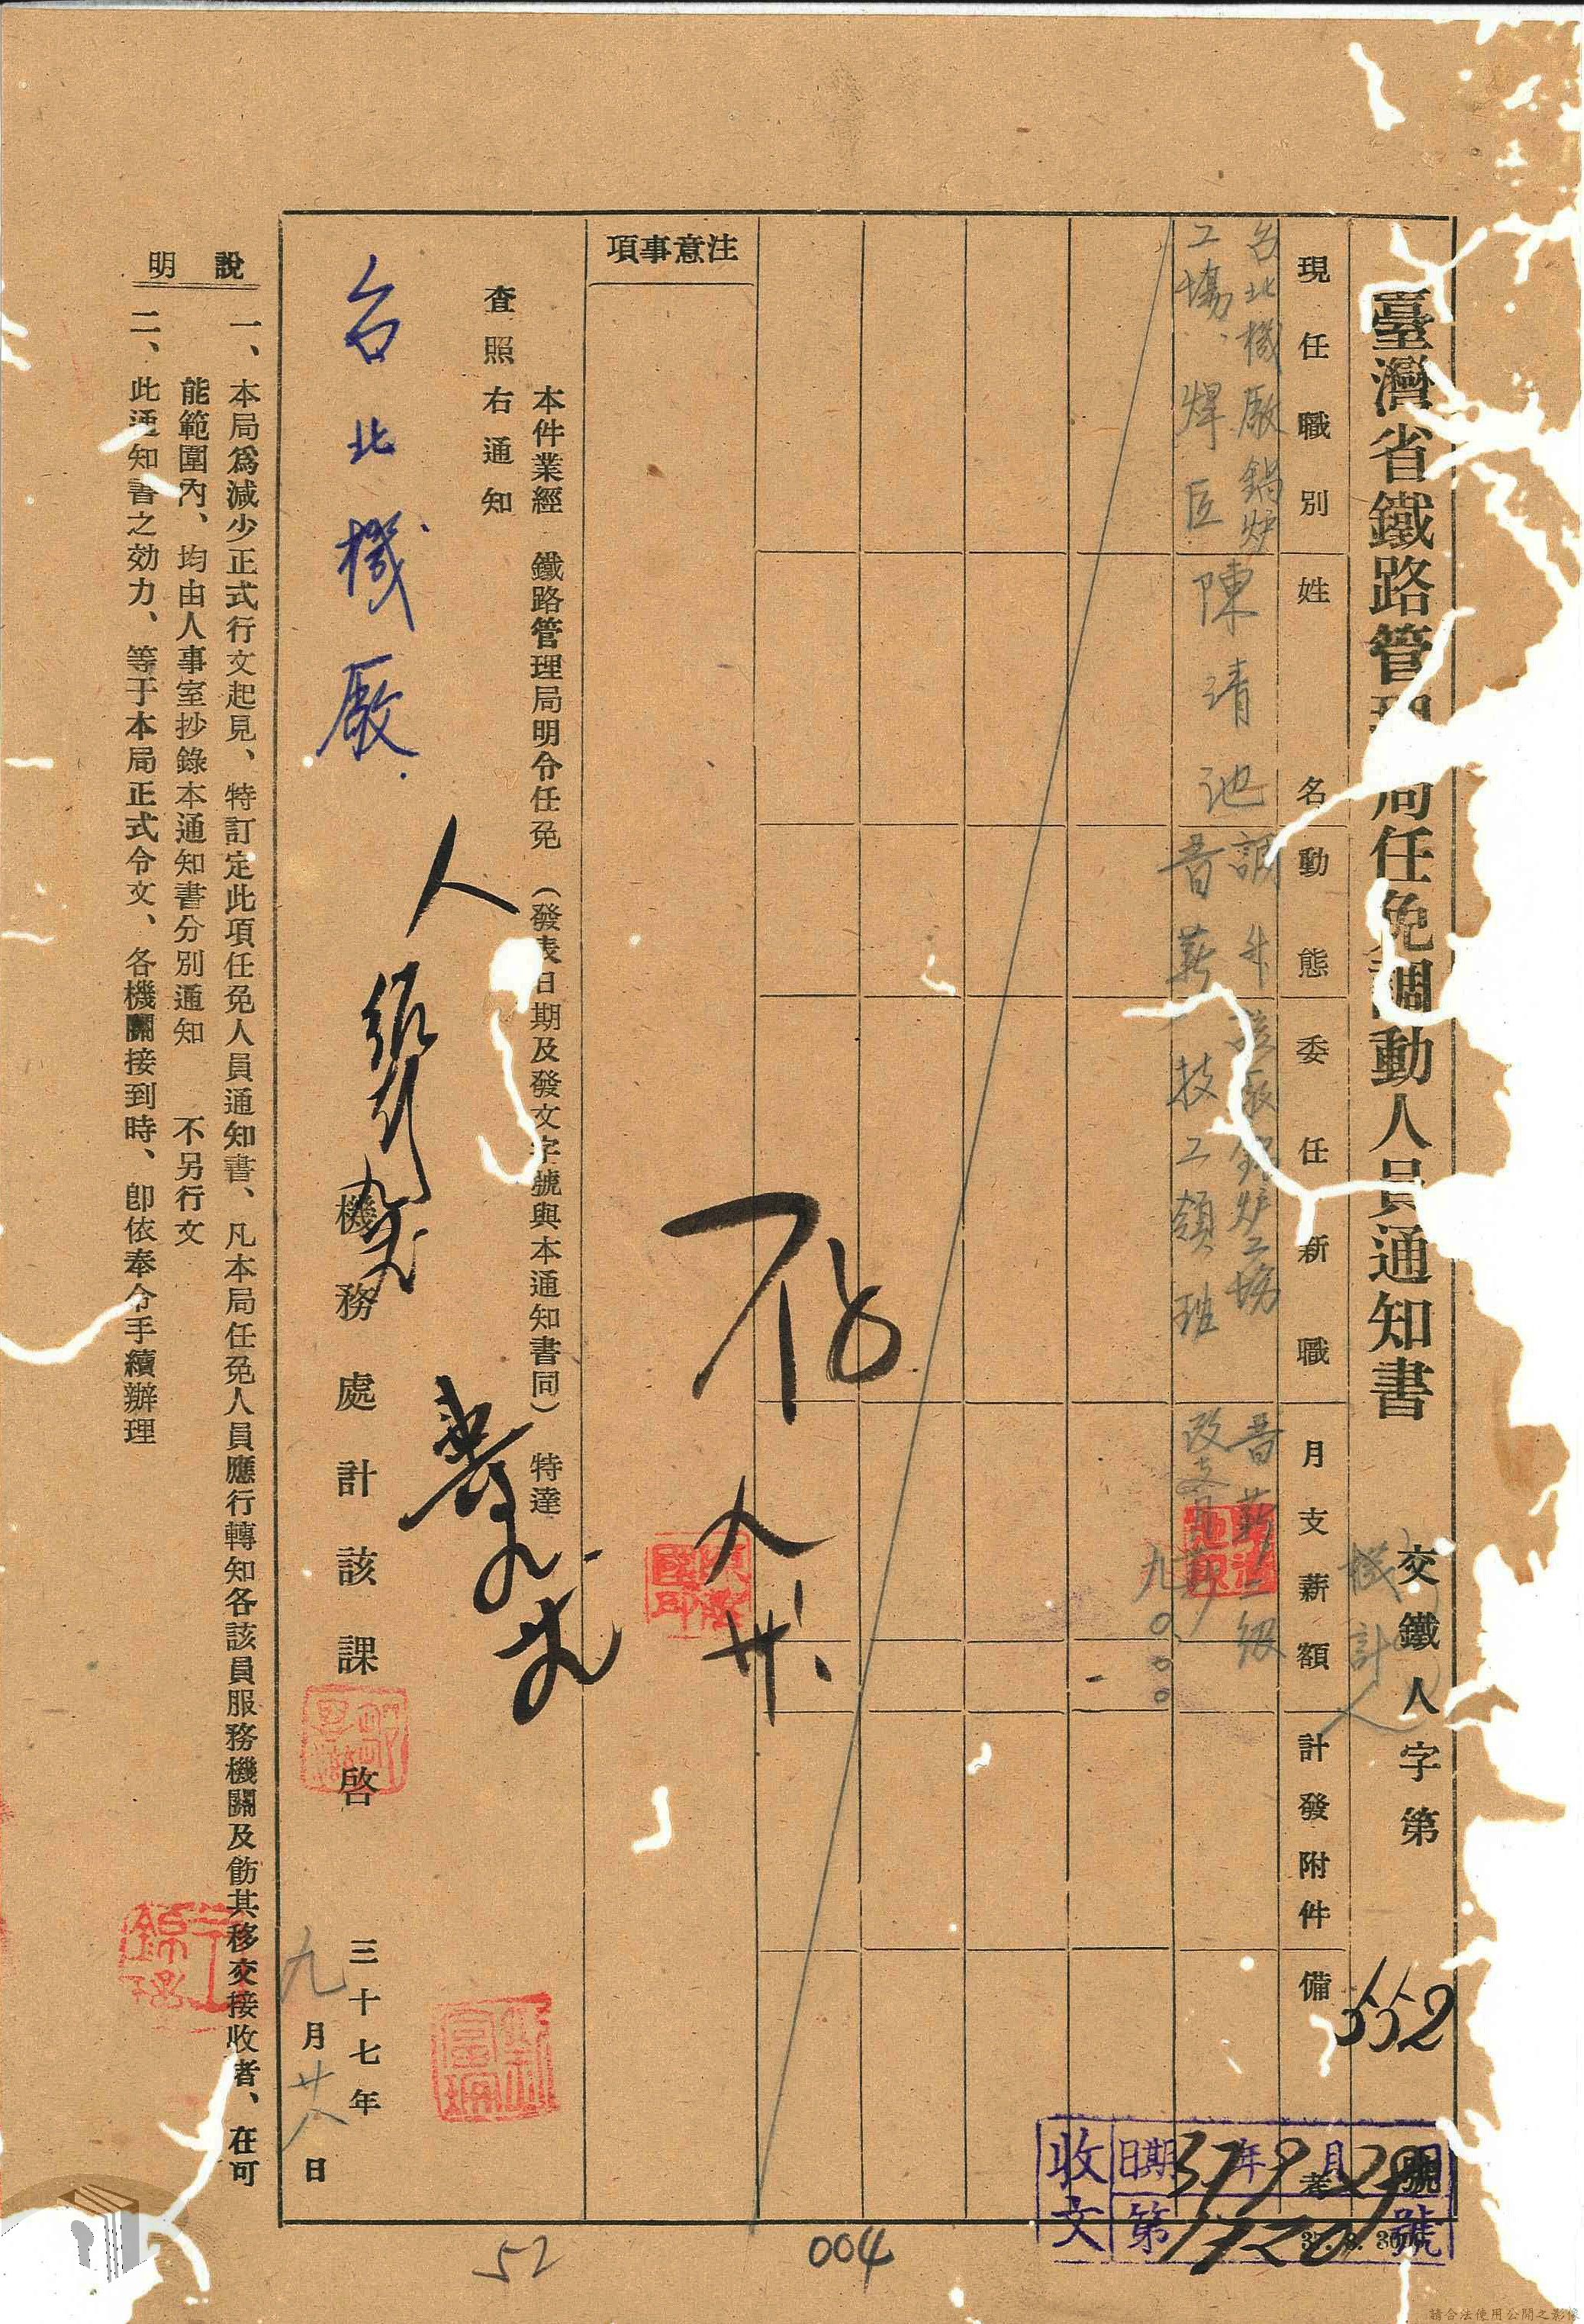 臺灣省鐵路管理局任免調動人員通知書
交鐵人字第
機計人
552
號
現任職別
姓名
動態
委任新職
月支薪額
計發附件
備考
台北機廠鍋炉
工場、焊匠
陳清池
調升
晋薪
該廠鍋炉工場
技工領班
晋薪二級
改支月薪
九〇.〇〇
注意事項
人
本件業經 鐵路管理局明令任免(發表日期及發文字號與本通知書同) 特達
查照右通知
台北機廠
人
機務處計該課啓
三十七年
九月廿八日
說明
一、本局爲減少正式行文起見、特訂定此項任免人員通知書、凡本局任免人員應行轉知各該員服務機關及飭其移交接收者、在可
能範圍內、均由人事室抄錄本通知書分別通知 不另行文
二、此通知書之効力、等于本局正式令文、各機關接到時、卽依奉令手續辦理
收文
日期 37年9月29日
第1720號
004
52
請合法使用公開之影像